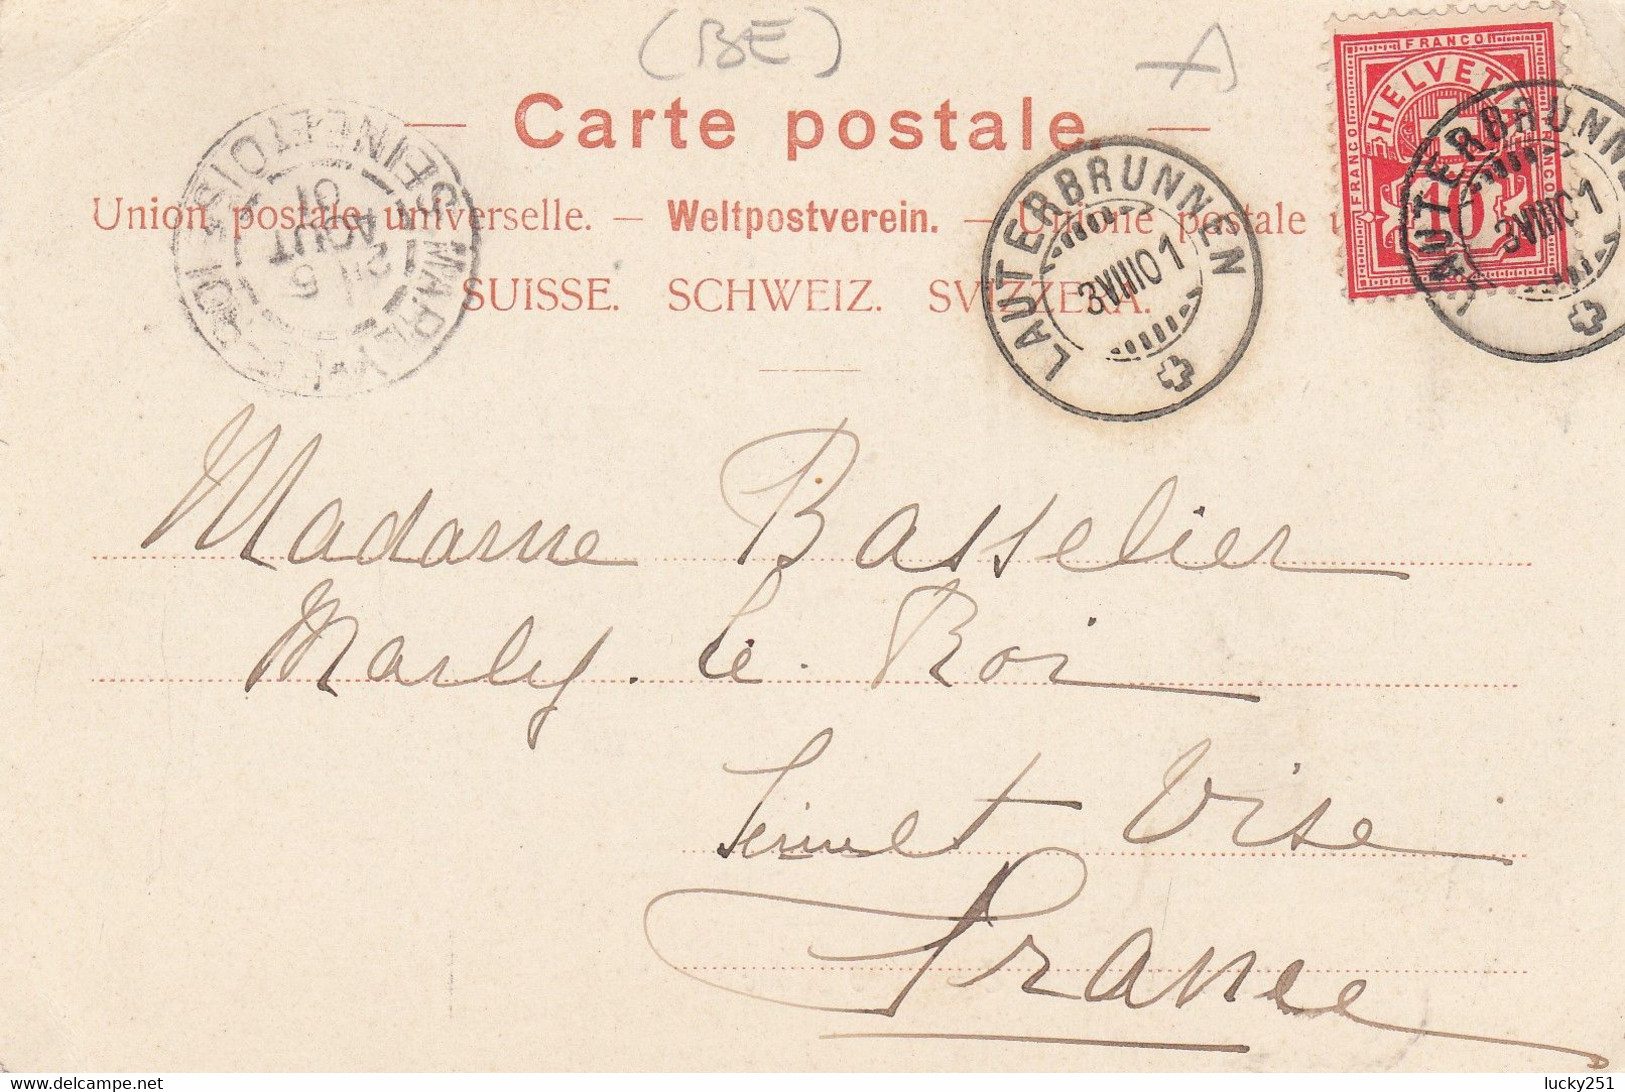 (BE) A
— Carte postale. —
Union postale universelle. — Weltpostverein. — Unione postale u
SUISSE. SCHWEIZ. SVIZZERA.
FRANCO
FRANCO HELVETIA FRANCO
10
LAUTERBRUNNEN
3 VIII 01
LAUTERBRUNNE
3 VIII 01
MARLY-LE-ROI SEINE-ET-OISE
5
AOUT
01
Madame Basselier
Marly. le. Roi
Seine et Oise
France
delcampe.net
lucky251